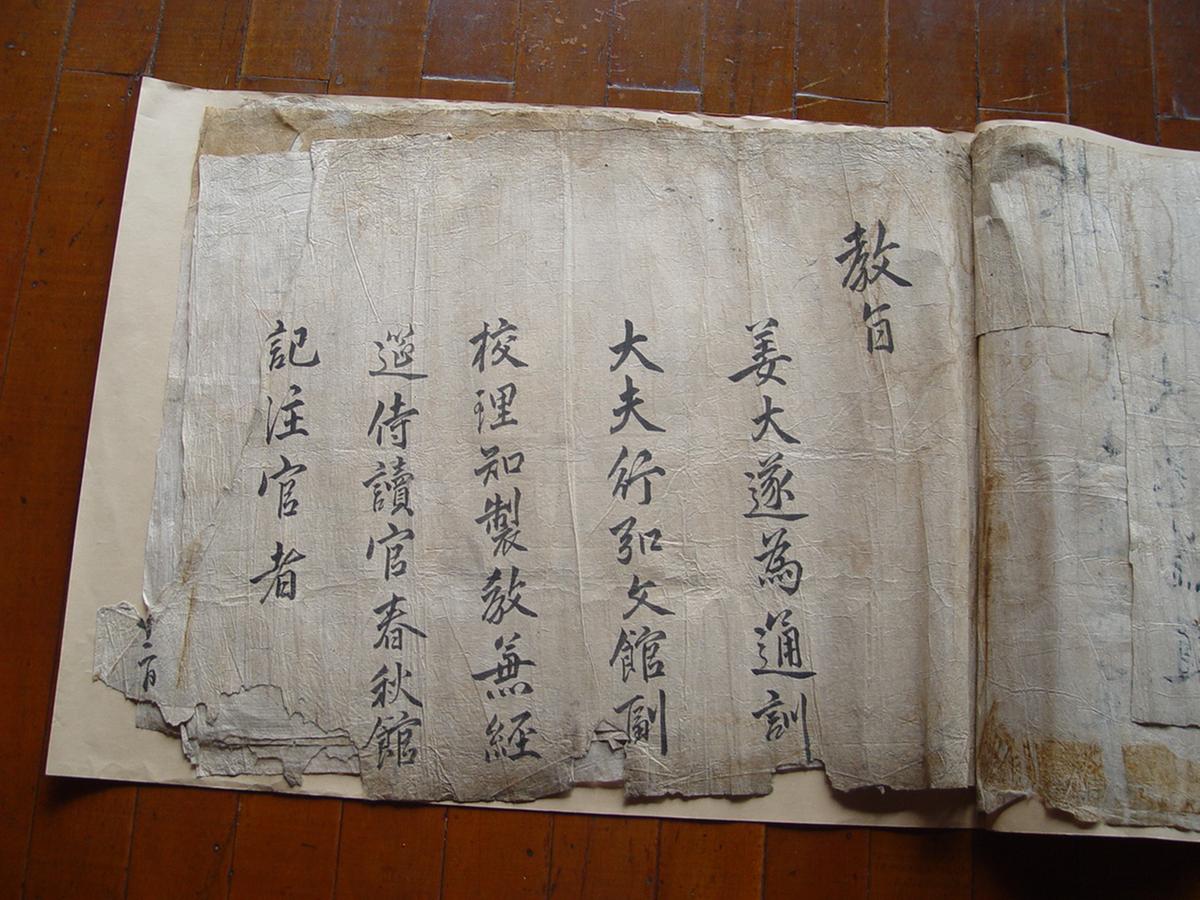 教旨
姜大遂為通訓
大夫行弘文館副
校理知製教兼經
筵侍讀官春秋館
記注官者
二月